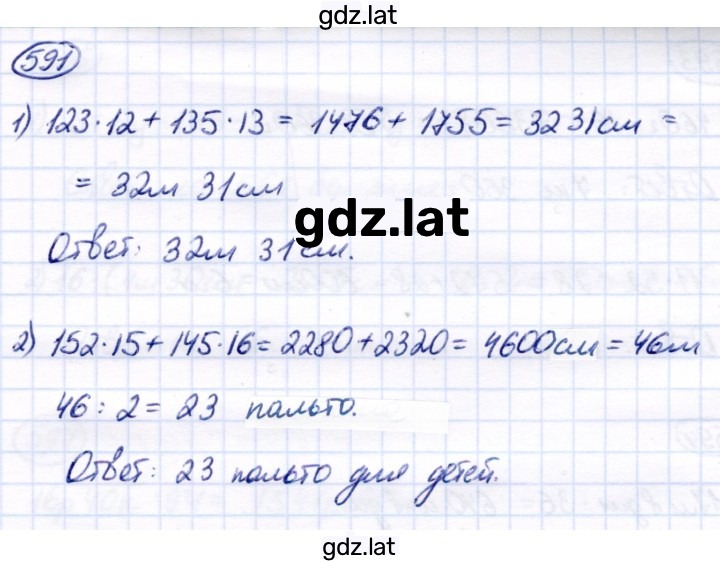 gdz.lat
591
1) 123·12 + 135·13 = 1476 + 1755 = 3231см =
= 32м 31см
gdz.lat
Ответ: 32м 31см.
2) 152·15 + 145·16 = 2280 + 2320 = 4600см = 46м
46 : 2 = 23 пальто.
Ответ: 23 пальто для детей.
gdz.lat